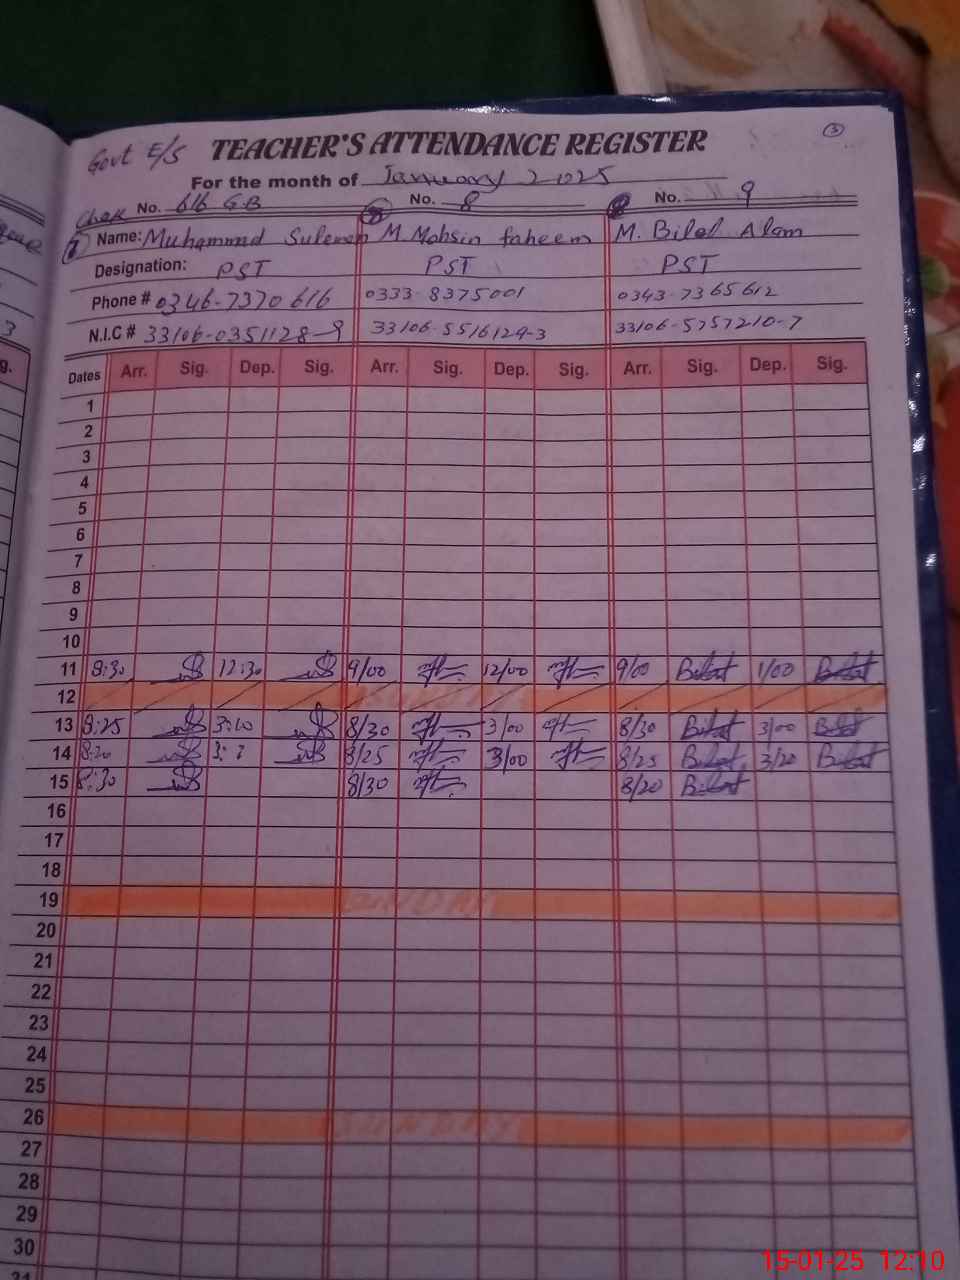 3
Govt E/S TEACHER'S ATTENDANCE REGISTER
For the month of January 2025
Chak No. 616 GB No. 8 No. 9
7 8 9
Name: Muhammd Suleman M. Mohsin faheem M. Bilal Alam
Designation: PST PST PST
Phone # 0346-7370616 0333-8375001 0343-7365612
N.I.C # 33106-0351128-9 33106-5516129-3 33106-5757210-7
Dates Arr. Sig. Dep. Sig. Arr. Sig. Dep. Sig. Arr. Sig. Dep. Sig.
1
2
3
4
5
6
7
8
9
10
11 8:30 12:30 9/00 12/00 9/00 Bilal 1/00 Bilal
12
13 8:25 3:10 8/30 3/00 8/30 Bilal 3/00 Bilal
14 8:20 8/25 3/00 8/25 Bilal 3/20 Bilal
15 8:30 8/30 8/20 Bilal
16
17
18
19 SUNDAY
20
21
22
23
24
25
26 SUNDAY
27
28
29
30
31
15-01-25 12:10